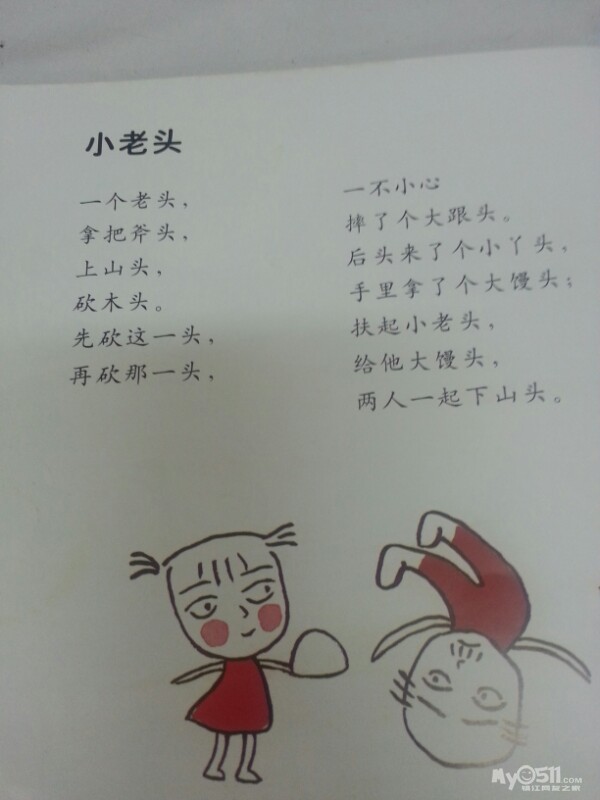 小老头
一个老头，
拿把斧头，
上山头，
砍木头。
先砍这一头，
再砍那一头，
一不小心
摔了个大跟头。
后头来了个小丫头，
手里拿了个大馒头；
扶起小老头，
给他大馒头，
两人一起下山头。
My0511.COM
镇江网友之家